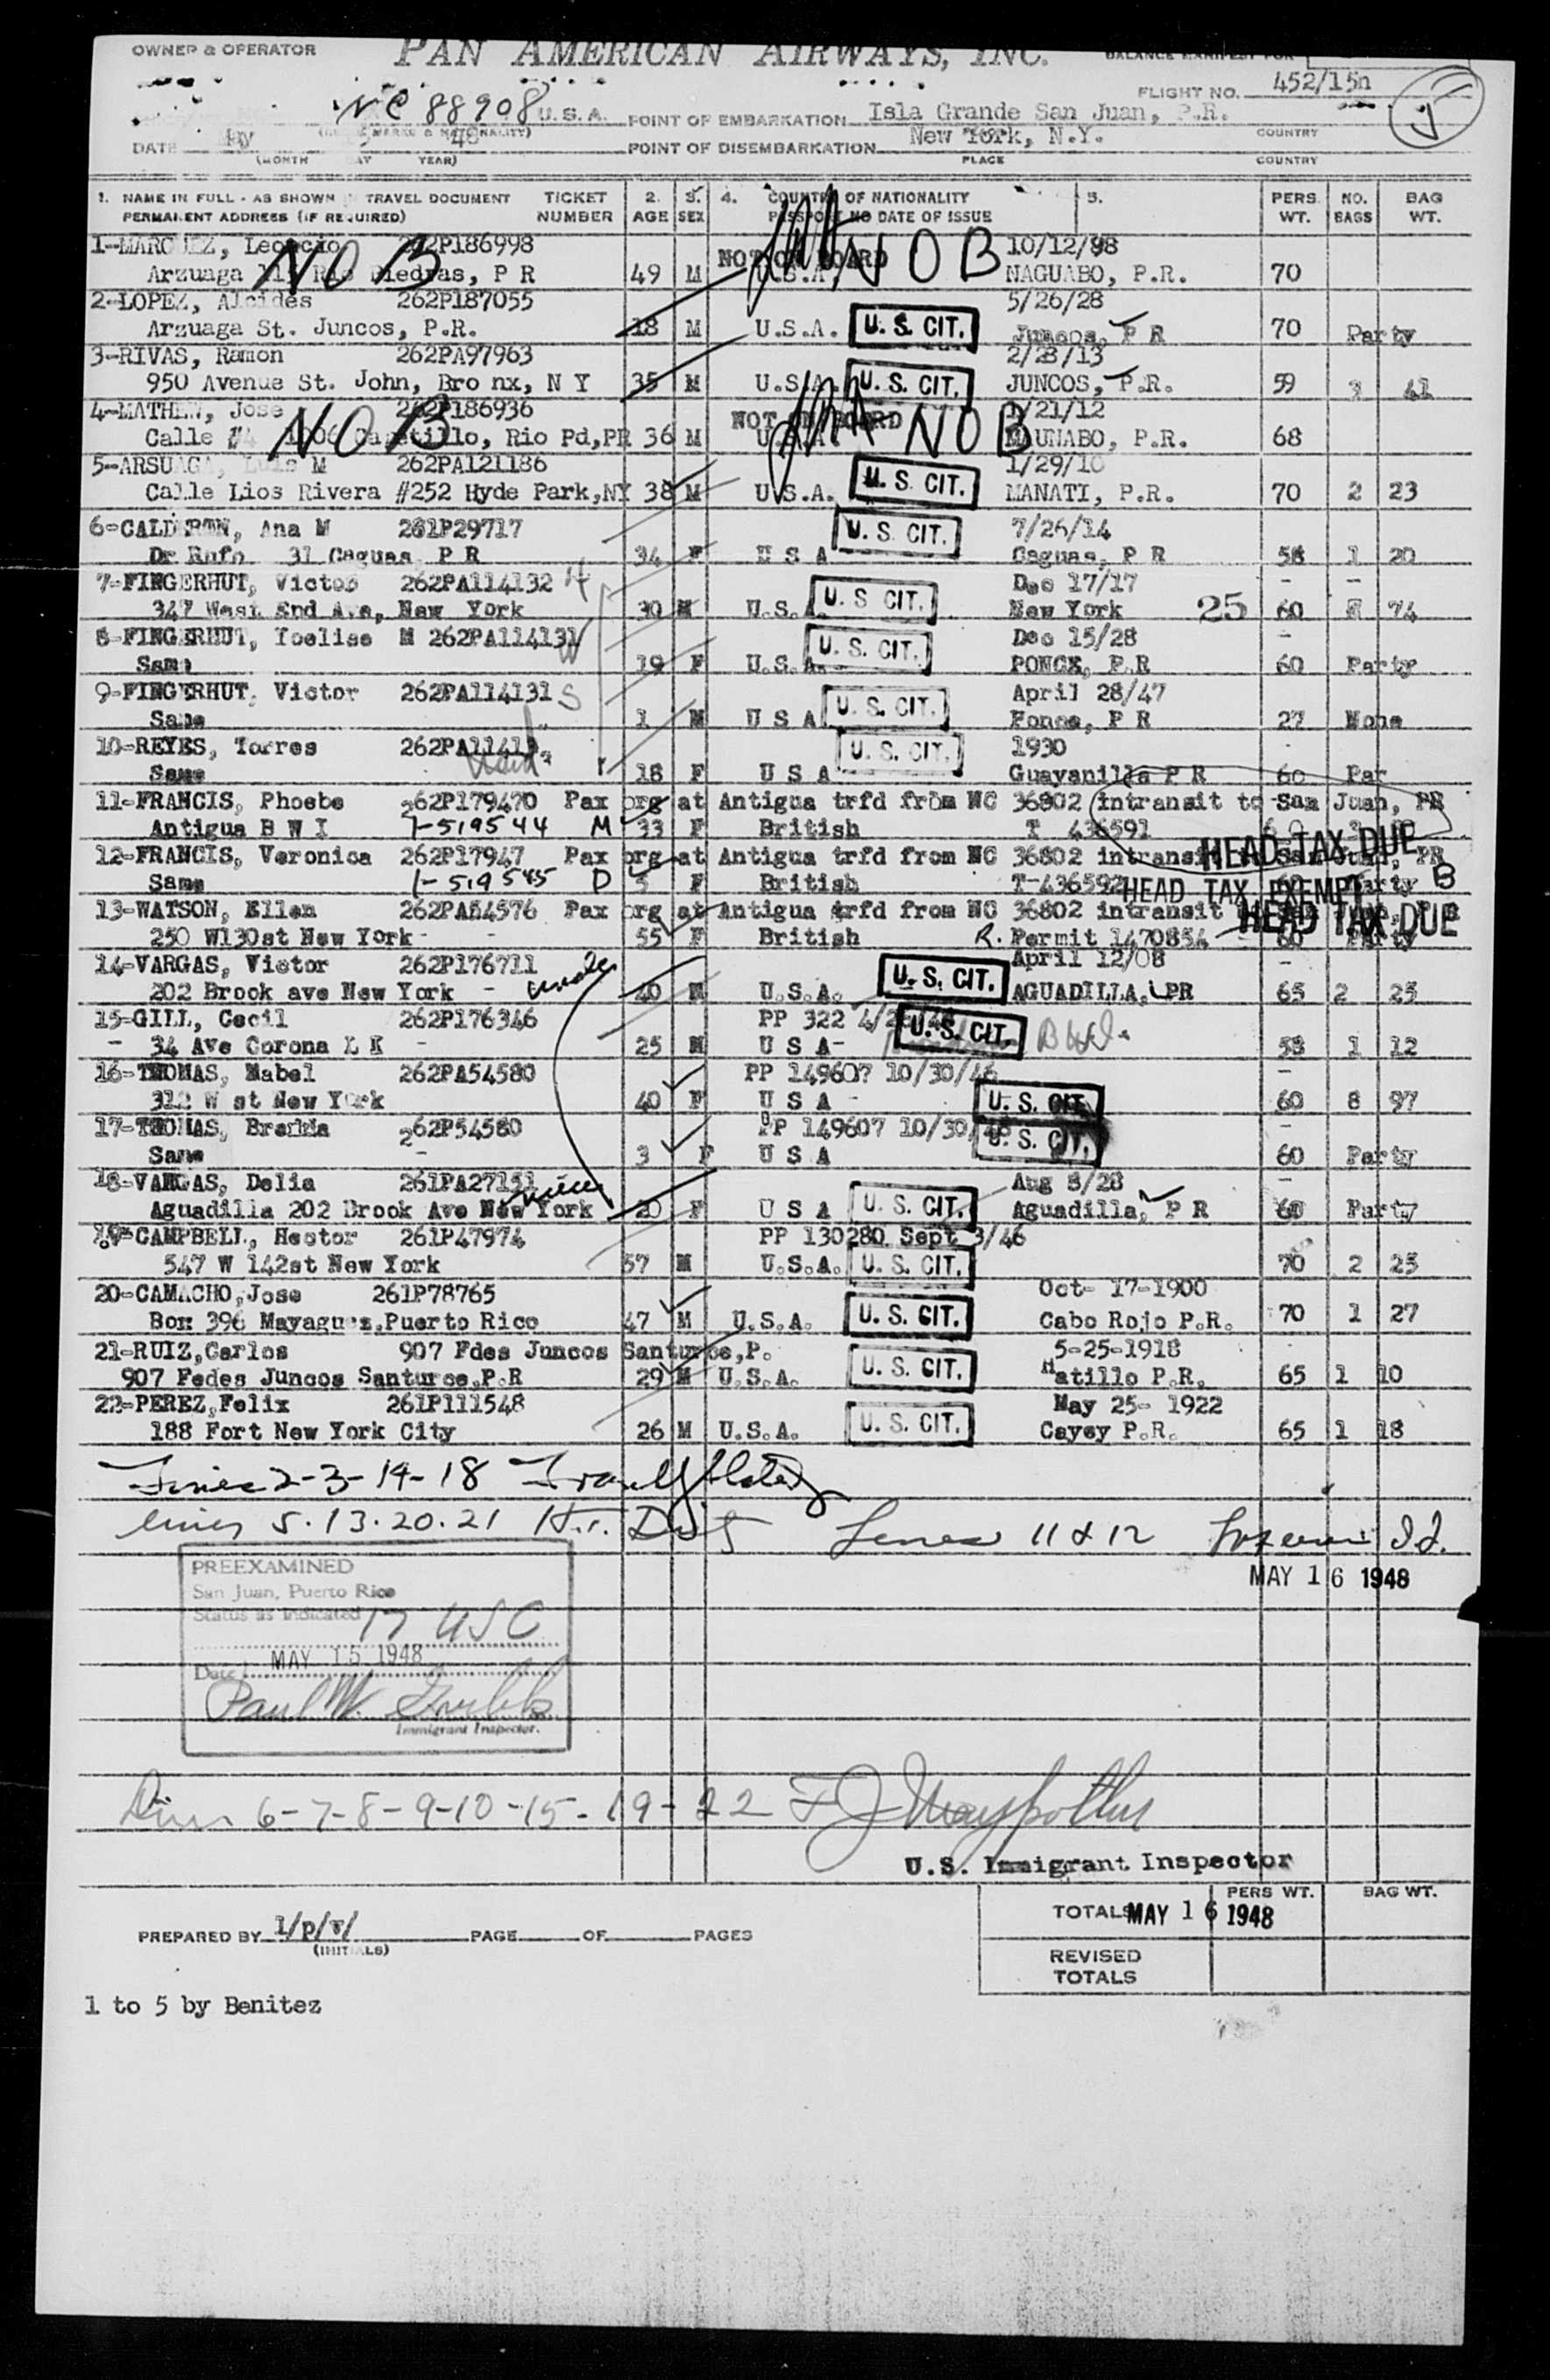 OWNER & OPERATOR PAN AMERICAN AIRWAYS, INC.
FLIGHT NO. 452/15n
NC 88908 U.S.A. POINT OF EMBARKATION Isla Grande San Juan, P.R. COUNTRY
DATE 48 POINT OF DISEMBARKATION New York, N.Y.
(MONTH YEAR) PLACE COUNTRY
1. NAME IN FULL - AS SHOWN TRAVEL DOCUMENT TICKET 2. 3. 4. COUNTRY OF NATIONALITY 5. PERS. NO. BAG
PERMANENT ADDRESS (IF REQUIRED) NUMBER AGE SEX PASSPORT NO DATE OF ISSUE WT. BAGS WT.
1- 262P186998 NOT ON BOARD 10/12/98
Arzuaga Piedras, P R NOB 49 M U.S.A. NOB NAGUABO, P.R. 70
2-LOPEZ, Alcides 262P187055 5/26/28
Arzuaga St. Juncos, P.R. 18 M U.S.A. U. S. CIT. Juncos, P R 70 Party
3-RIVAS, Ramon 262PA97963 2/28/13
950 Avenue St. John, Bro nx, N Y 35 M U.S.A. U. S. CIT. JUNCOS, P.R. 59 41
4- Jose 262P186936 NOT ON BOARD 1/21/12
Calle Rio Pd,PR NOB 36 M U.S.A. NOB MAUNABO, P.R. 68
5-ARSUAGA, Luis M 262PA121186 1/29/10
Calle Lios Rivera #252 Hyde Park,NY 38 M U.S.A. U. S. CIT. MANATI, P.R. 70 2 23
6-CALDERON, Ana M 261P29717 U. S. CIT. 7/26/14
Dr Rufo 31 Caguas, P R 34 F U S A Caguas, P R 58 1 20
7-FINGERHUT, Victor 262PA114132 H Dec 17/17 - -
347 West End Ave, New York 30 M U.S.A. U. S CIT. New York 25 60 74
8-FINGERHUT, Yoelise M 262PA114131 W Dec 15/28 -
Same 19 F U.S.A. U. S. CIT. PONCE, P.R 60 Party
9-FINGERHUT, Victor 262PA114131 S April 28/47
Same 1 M U S A U. S. CIT. Ponce, P R 27 None
10-REYES, Torres 1930
Same 18 F U S A U. S. CIT. Guayanilla P R 60 Par
11-FRANCIS, Phoebe 262P179470 Pax org at Antigua trfd from NC 36802 intransit to San Juan, PR
Antigua B W I I-519544 M 33 F British T 436591 HEAD TAX DUE
12-FRANCIS, Veronica 262P17947 Pax org at Antigua trfd from NC 36802 intransit San Juan, PR
Same I-519545 D 5 F British T-436592 HEAD TAX EXEMPT Party B
13-WATSON, Ellen 262PA54576 Pax org at Antigua trfd from NC 36802 intransit HEAD TAX DUE
250 W130st New York - - 55 F British R. Permit 1470854 - 60 Party
14-VARGAS, Victor 262P176711 April 12/08 -
202 Brook ave New York - uncle 40 M U.S.A. U. S. CIT. AGUADILLA, PR 65 2 25
15-GILL, Cecil 262P176346 PP 322
- 34 Ave Corona L I - 25 M U S A- U. S. CIT. 58 1 12
16-THOMAS, Mabel 262PA54580 PP 149607 10/30/46 -
312 W st New York 40 F U S A - U. S. CIT. 60 8 97
17-THOMAS, Brenda 262P54580 PP 149607 10/30/ -
Same - 3 F U S A U. S. CIT. 60 Party
18-VARGAS, Delia 261PA27151 niece Aug 8/28 -
Aguadilla 202 Brook Ave New York 20 F U S A U. S. CIT. Aguadilla, P R 60 Party
19-CAMPBELL, Hector 261P47974 PP 130280 Sept 3/46
547 W 142st New York 57 M U.S.A. U. S. CIT. 70 2 25
20-CAMACHO,Jose 261P78765 Oct- 17-1900
Box 396 Mayaguez,Puerto Rico 47 M U.S.A. U. S. CIT. Cabo Rojo P.R. 70 1 27
21-RUIZ,Carlos 907 Fdes Juncos Santurce,P. 5-25-1918
907 Fedes Juncos Santurce,P.R 29 M U.S.A. U. S. CIT. Hatillo P.R. 65 1 10
22-PEREZ,Felix 261P111548 May 25- 1922
188 Fort New York City 26 M U.S.A. U. S. CIT. Cayey P.R. 65 1 18
Lines 2-3-14-18
Lines 5.13.20.21 Lines 11 & 12
MAY 16 1948
PREEXAMINED
San Juan, Puerto Rico
Status as indicated 17 USC
Date MAY 15 1948
Paul W.
Immigrant Inspector.
Lines 6-7-8-9-10-15-19-22
U.S. Immigrant Inspector
TOTALS MAY 16 1948 PERS WT. BAG WT.
PREPARED BY l/p/r/ PAGE OF PAGES
(INITIALS)
REVISED
TOTALS
1 to 5 by Benitez